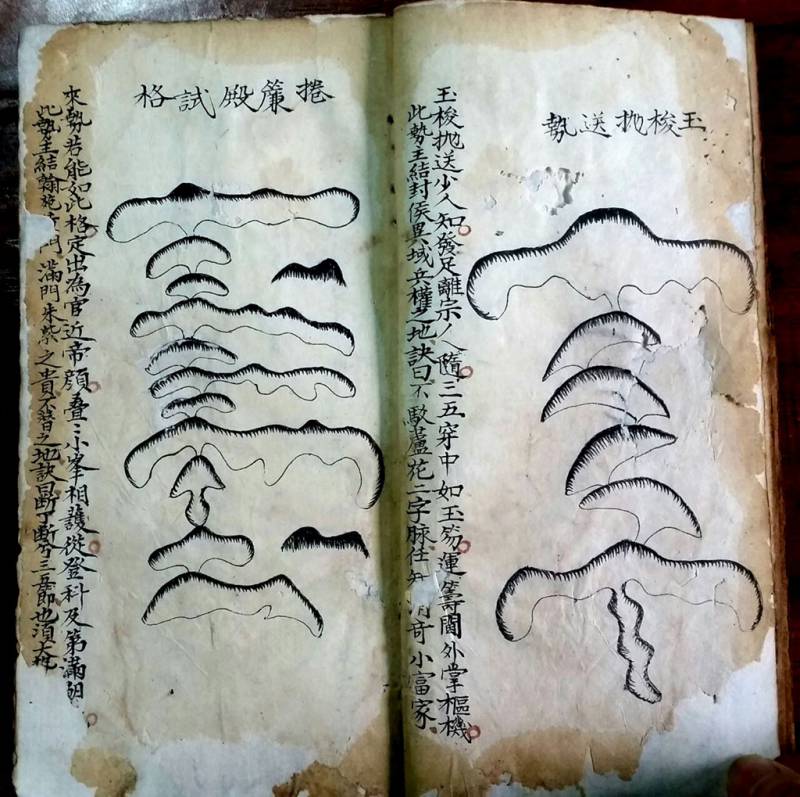 玉梭抛送勢
玉梭抛送少人知發足離宗人隨三五穿中如玉笏運籌閫外掌樞機
此勢主結封侯異域兵權之地訣曰不蘆花二字脉任奇小富家
捲簾殿試格
來勢若能如此格定出為官近帝顏叠〻小峯相護從登科及第滿朝
此勢主結翰門滿門朱紫之貴不替之地訣曰斷了斷兮三五節也須大